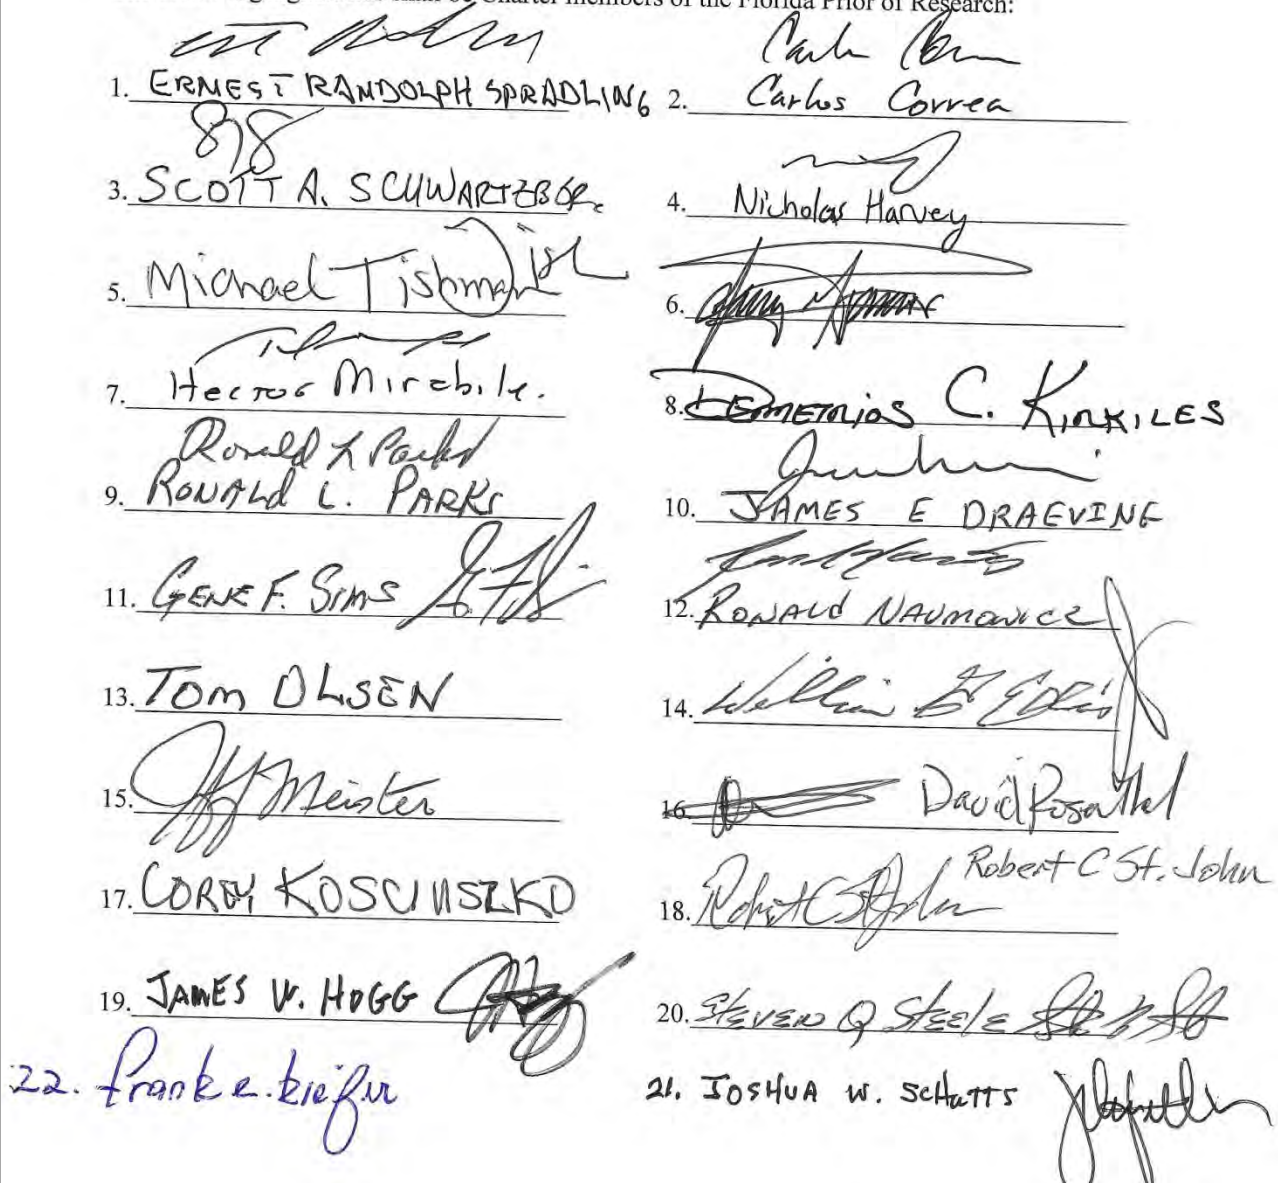 Charter members of the Florida Prior of Research:
1. ERNEST RANDOLPH SPRADLING
2. Carlos Correa
3. SCOTT A. SCHWARTZBER
4. Nicholas Harvey
5. Michael Tishman
6.
7. Hector Mirabile.
8. DEMETRIOS C. KIRKILES
Ronald L Parks
9. RONALD L. PARKS
10. JAMES E DRAEVING
11. GENE F. SIMS
12. RONALD NAUMOWICZ
13. TOM OLSEN
14. William
15. Jeff Meister
16. David Rosenthal
17. COREY KOSCIUSZKO
18. Robert C St. John Robert C St. John
19. JAMES W. HOGG
20. STEVEN Q STEELE
22. frank e. kiefer
21. JOSHUA W. SCHUTTS